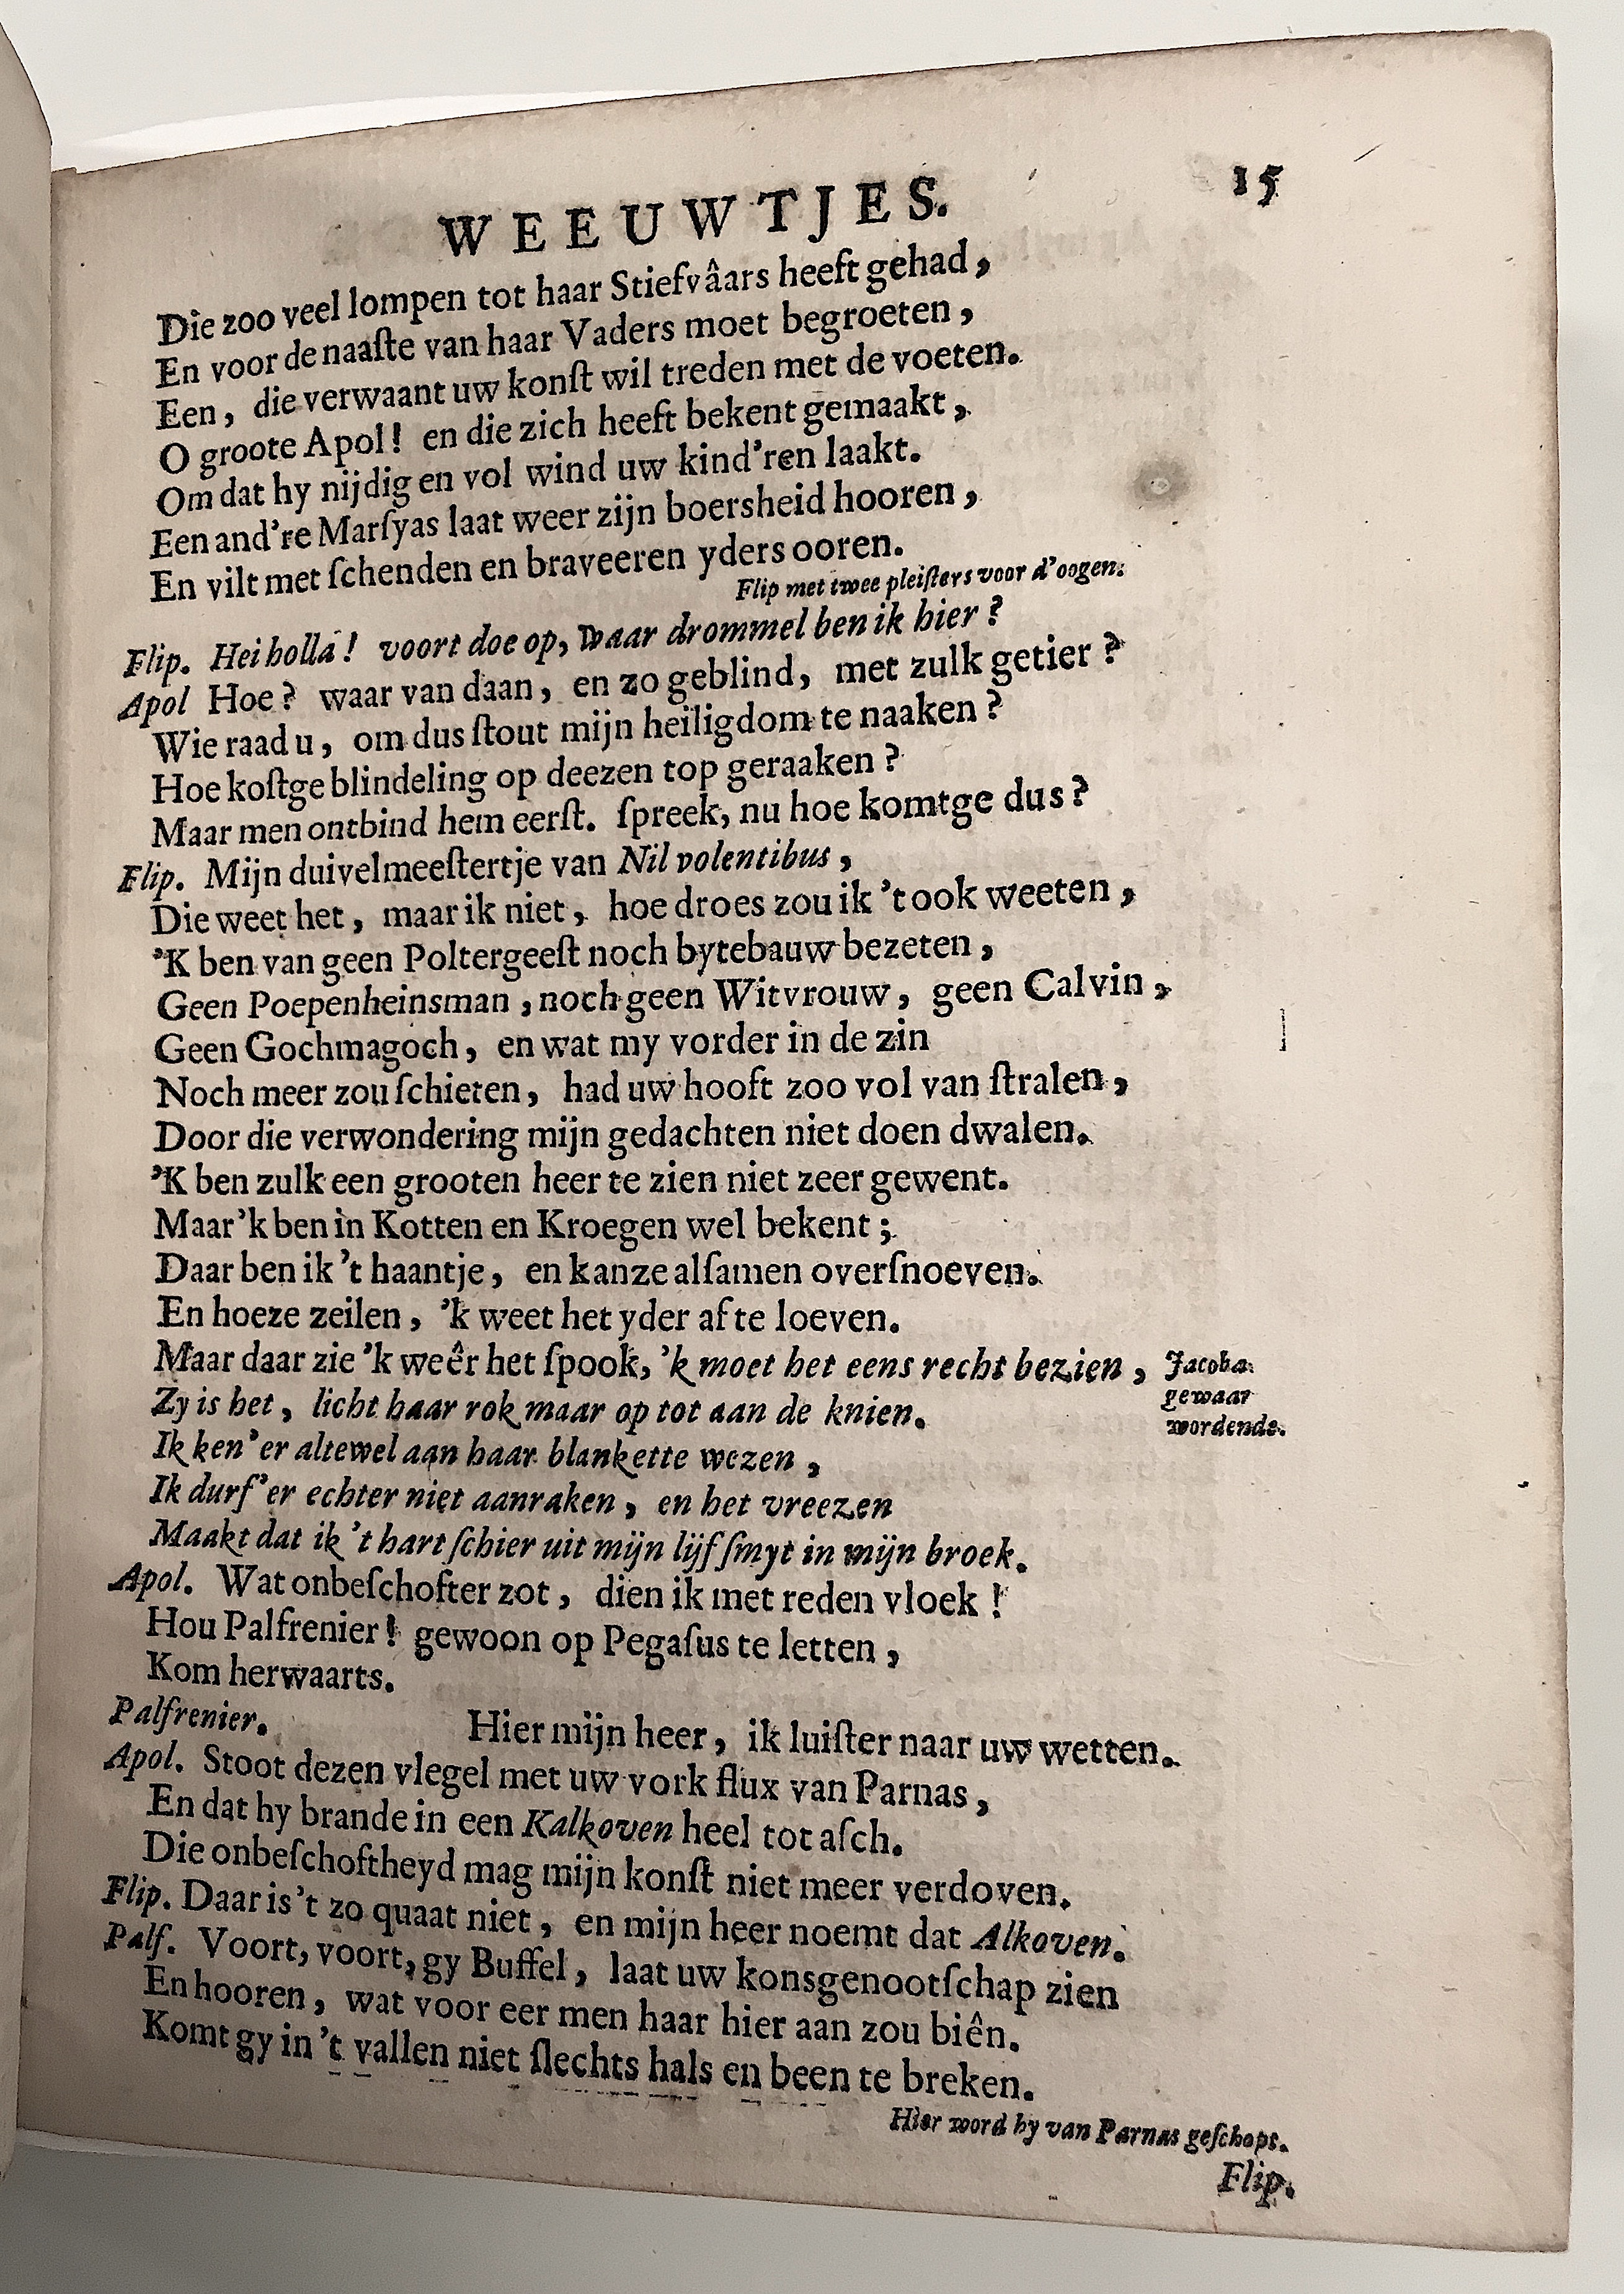 WEEUWTJES. 15
Die zoo veel lompen tot haar Stiefvâars heeft gehad,
En voor de naaſte van haar Vaders moet begroeten,
Een, die verwaant uw konſt wil treden met de voeten.
O groote Apol! en die zich heeft bekent gemaakt,
Om dat hy nijdig en vol wind uw kind'ren laakt.
Een and're Marſyas laat weer zijn boersheid hooren,
En vilt met ſchenden en braveeren yders ooren.
Flip met twee pleiſters voor d'oogen.
Flip. Hei holla! voort doe op, waar drommel ben ik hier?
Apol Hoe? waar van daan, en zo geblind, met zulk getier?
Wie raad u, om dus ſtout mijn heiligdom te naaken?
Hoe koſtge blindeling op deezen top geraaken?
Maar men ontbind hem eerſt. ſpreek, nu hoe komtge dus?
Flip. Mijn duivelmeeſtertje van Nil volentibus,
Die weet het, maar ik niet, hoe droes zou ik 't ook weeten,
'K ben van geen Poltergeeſt noch bytebauw bezeten,
Geen Poepenheinsman, noch geen Witvrouw, geen Calvin,
Geen Gochmagoch, en wat my vorder in de zin
Noch meer zou ſchieten, had uw hooft zoo vol van ſtralen,
Door die verwondering mijn gedachten niet doen dwalen.
'K ben zulk een grooten heer te zien niet zeer gewent.
Maar 'k ben in Kotten en Kroegen wel bekent;
Daar ben ik 't haantje, en kanze alſamen overſnoeven.
En hoeze zeilen, 'k weet het yder af te loeven.
Maar daar zie 'k weêr het ſpook, 'k moet het eens recht bezien, Jacoba
gewaar
wordende.
Zy is het, licht haar rok maar op tot aan de knien.
Ik ken'er altewel aan haar blankette wezen,
Ik durf'er echter niet aanraken, en het vreezen
Maakt dat ik 't hart ſchier uit mijn lijf ſmyt in mijn broek.
Apol. Wat onbeſchofter zot, dien ik met reden vloek!
Hou Palfrenier! gewoon op Pegaſus te letten,
Kom herwaarts.
Palfrenier. Hier mijn heer, ik luiſter naar uw wetten.
Apol. Stoot dezen vlegel met uw vork flux van Parnas,
En dat hy brande in een Kalkoven heel tot aſch.
Die onbeſchoftheyd mag mijn konſt niet meer verdoven.
Flip. Daar is 't zo quaat niet, en mijn heer noemt dat Alkoven.
Palf. Voort, voort, gy Buffel, laat uw konsgenootſchap zien
En hooren, wat voor eer men haar hier aan zou biên.
Komt gy in 't vallen niet ſlechts hals en been te breken.
Hier word hy van Parnas geſchopt.
Flip.